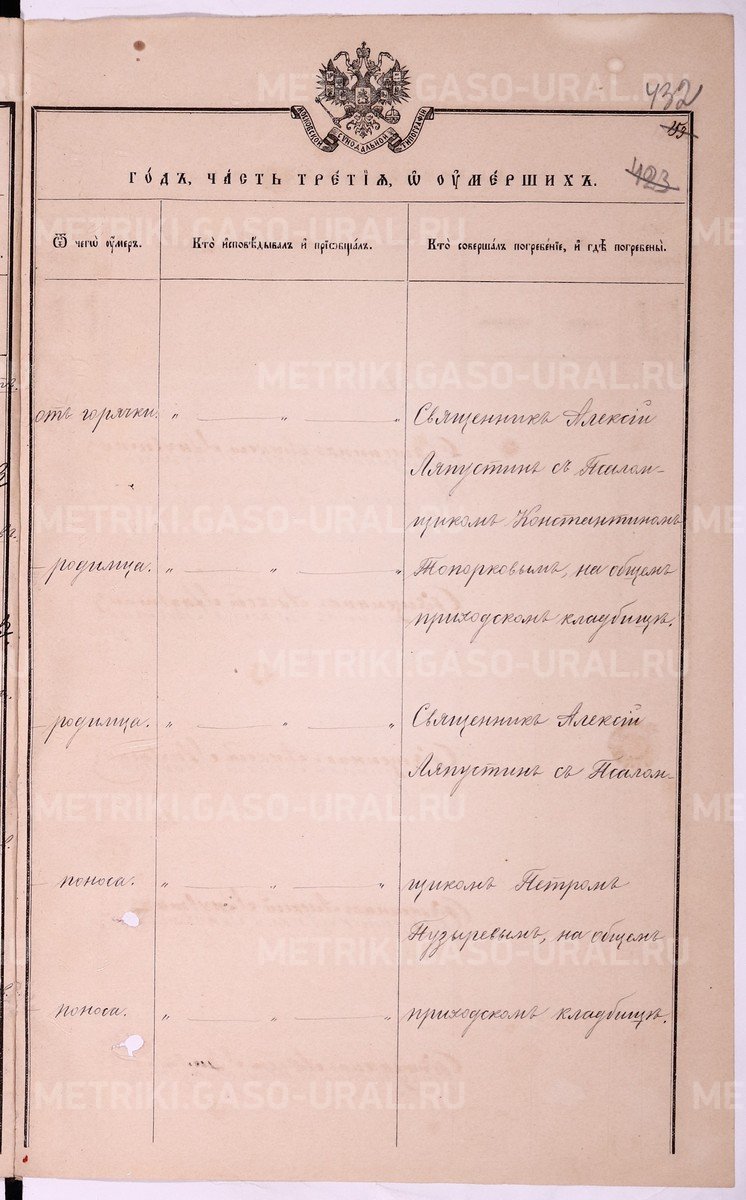 432
153
423
МОСКОВСКОЙ СѴНОДАЛЬНОЙ ТИПОГРАФІИ
ГО́ДЪ, ЧА́СТЬ ТРЕ́ТІѦ, Ѡ ОУМЕ́РШИХЪ.
Ѿ чегѡ̀ оу́меръ.
Кто̀ и҆сповѣ́дывалъ и҆ прїѡбща́лъ.
Кто̀ соверша́лъ погребе́нїе, и҆ гдѣ̀ погребены̀.
отъ горячки. " — " — "
Священникъ Алексій
Ляпустинъ съ Псалом-
щикомъ Константиномъ
— родимца. " — " — "
Топорковымъ, на общемъ
приходскомъ кладбищѣ.
— родимца. " — " — "
Священникъ Алексій
Ляпустинъ съ Псалом-
— поноса. " — " — "
щикомъ Петромъ
Пузыревымъ, на общемъ
— поноса. " — " — "
приходскомъ кладбищѣ.
METRIKI.GASO-URAL.RU